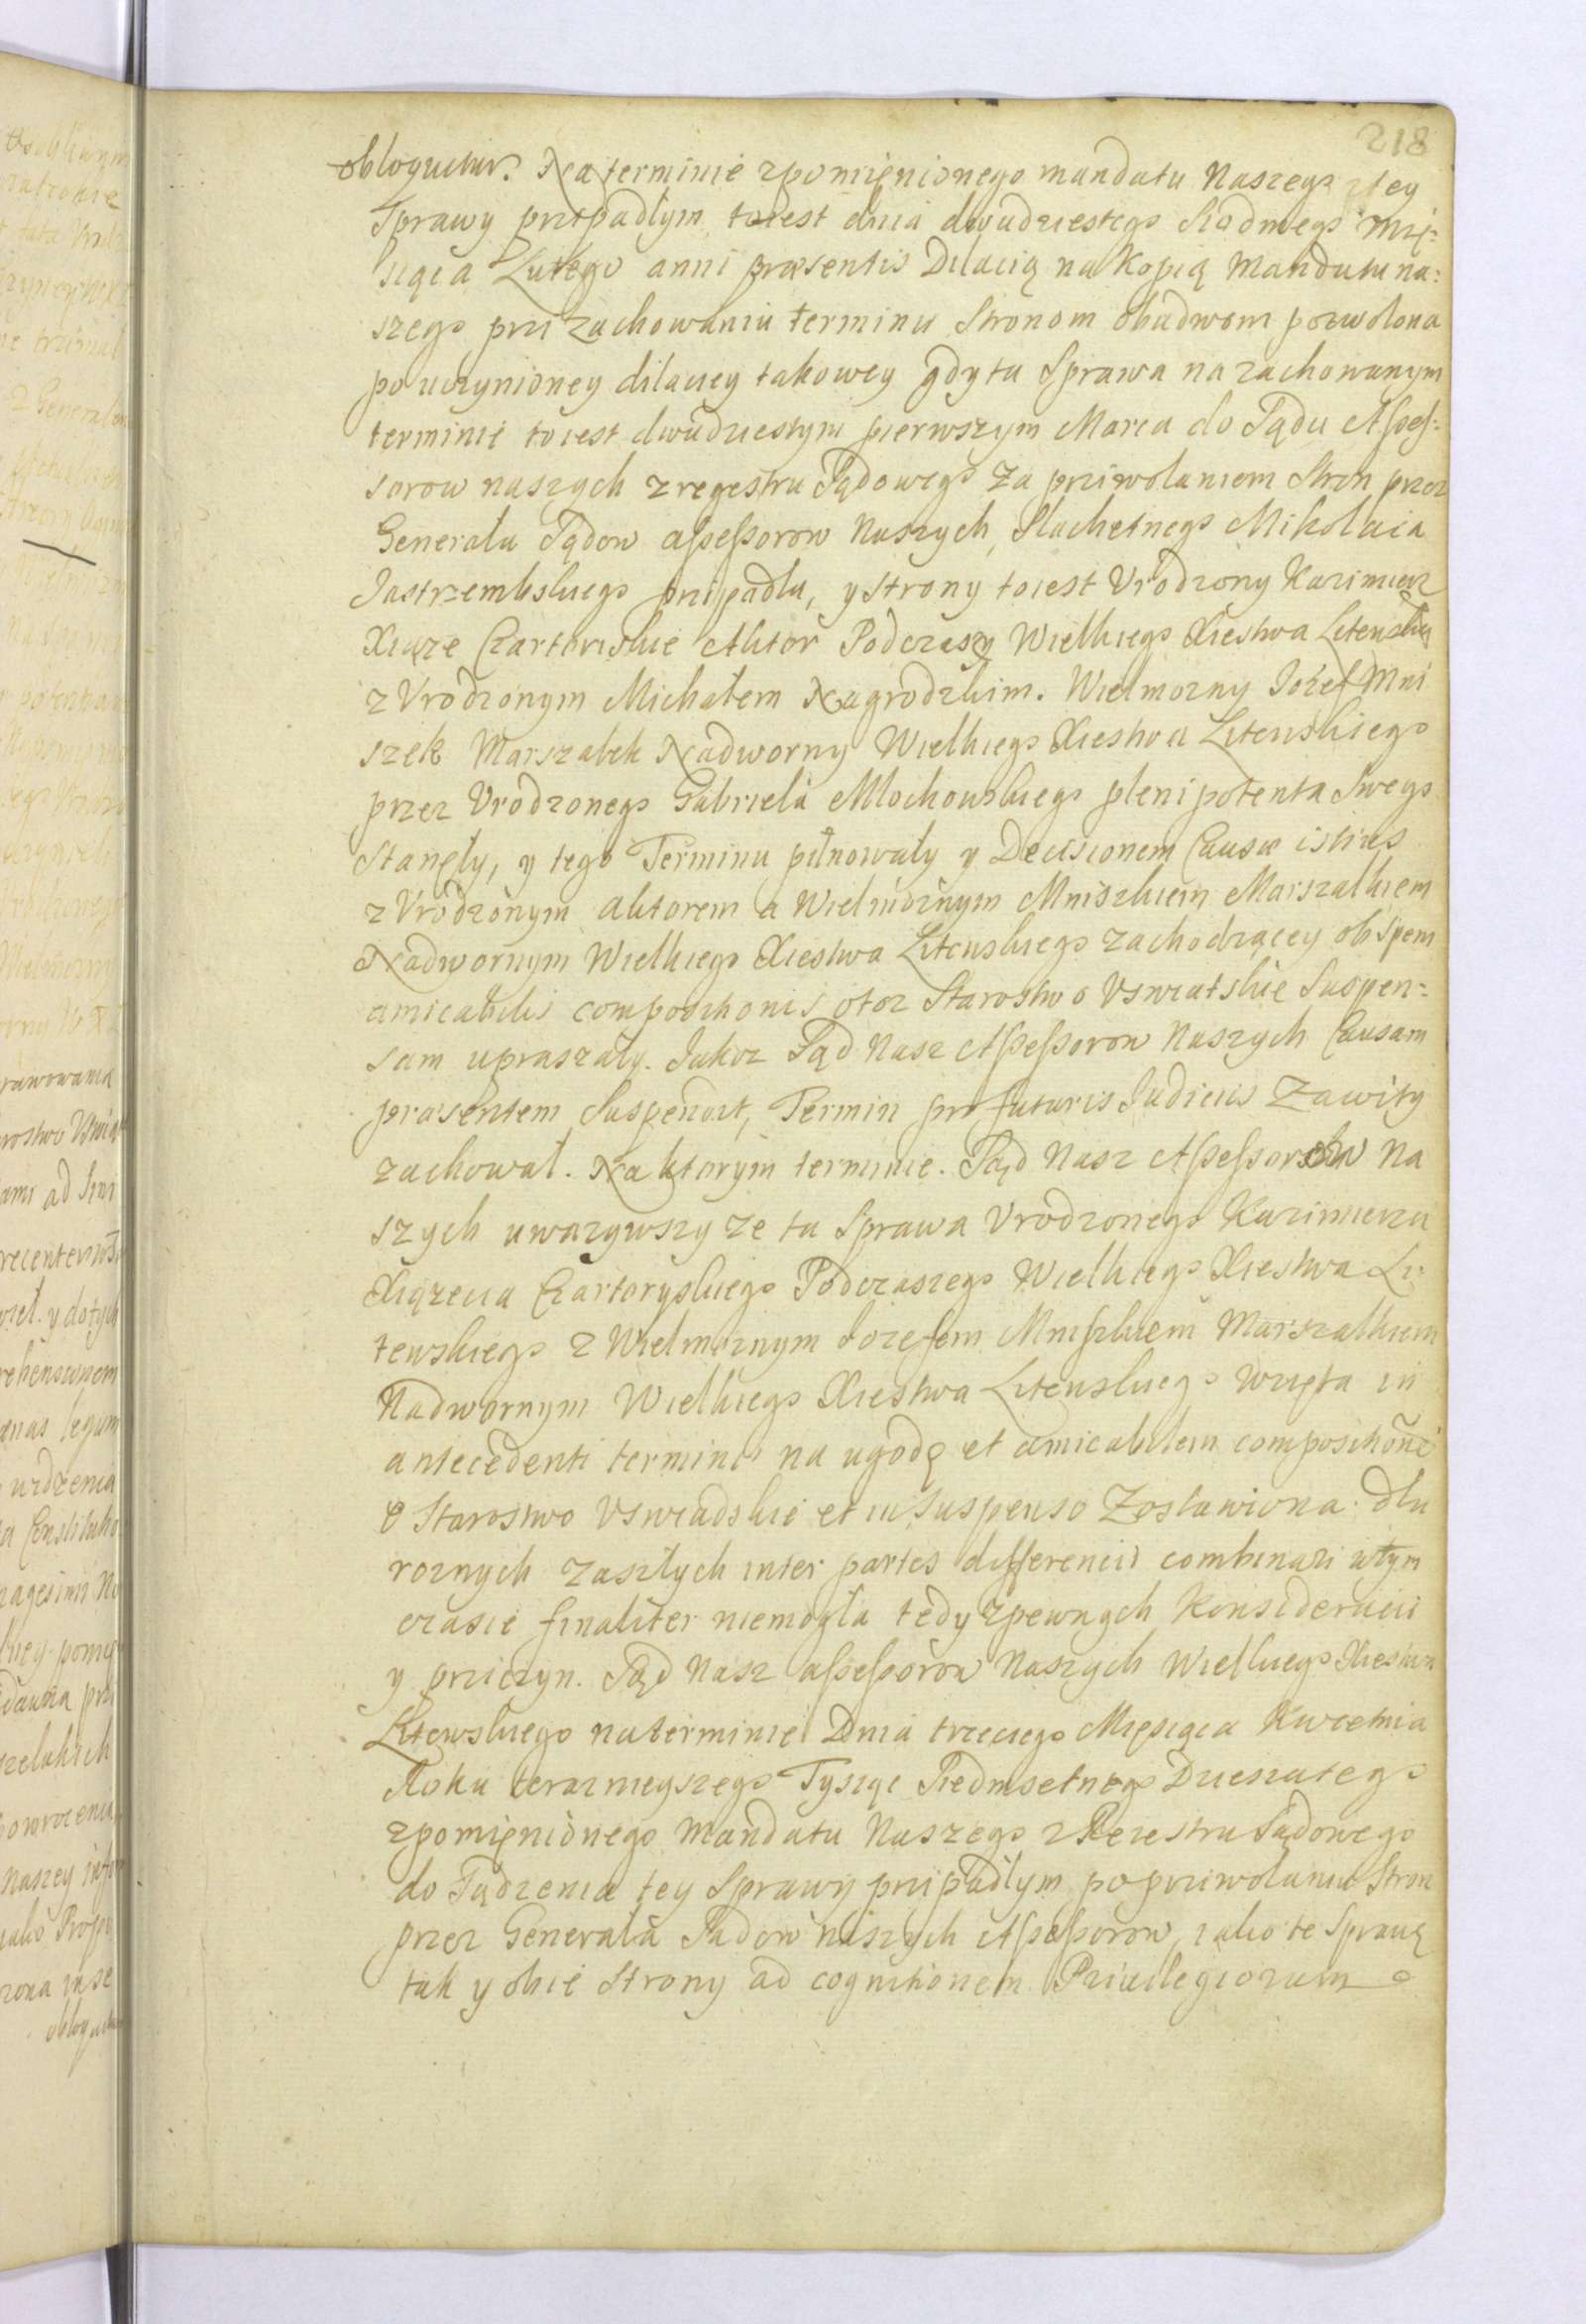 218
obloquitur. Na terminie zpomięnionego mandatu Naszego z tey
Sprawy przypadłym, toiest dnia dwudziestego Siodmego Mię-
siąca Lutego anni præsentis Dilacią na Kopią Mandatu na:
szego przi zachowaniu terminu Stronom obudwom pozwolona
po uczynioney dilaciey takowey gdy ta Sprawa na zachowanym
terminie toiest dwudziestym pierwszym Marca do Sądu Assess:
sorow naszych z regestru Sądowego za prziwolaniem Stron przez
Generała Sądow assessorow Naszych, Slachetnego Mikolaia
Jastrzembskiego przipadła, y Strony toiest Vrodzony Kazimierz
Xiąze Czartoriskie Aktor Podczaszy Wielkiego Xiestwa Litewskie
z Vrodzonym Michałem Nagrodzkim. Wielmozny Jozef Mni
szek Marszałek Nadworny Wielkiego Xiestwa Litewskiego
przez Vrodzonego Gabriela Młochowskiego plenipotenta Swego
Stanęły, y tego Terminu pilnowały y Decisionem Causæ istius
z Vrodzonym aktorem a Wielmoznym Mniszkiem Marszałkiem
Nadwornym Wielkiego Xiestwa Litewskiego zachodzącey ob Spem
amicabilis compositionis otoz Starostwo Vswiatskie Suspen-
sam upraszały. Jakoz Sąd Nasz Assessorow Naszych Causam
præsentem Suspendit, Termin pro futuris Judiciis Zawity
zachował. Na ktorym terminie. Sąd Nasz Assessorow Na
szych uwazywszy ze ta Sprawa Vrodzonego Kazimierza
Xiązecia Czartoryskiego Podczaszego Wielkiego Xiestwa Li:
tewskiego z Wielmoznym Jozefem Mniszkiem Marszałkiem
Nadwornym Wielkiego Xiestwa Litewskiego Wzięta in
antecedenti termino na ugodę et amicabilem compositione
o Starostwo Vswiadskie et in Suspenso Zostawiona. dla
roznych zaszłych inter partes differencii combinari w tym
czasie finaliter niemogła tedy z pewnych Konsideracii
y przicziyn. Sąd Nasz assessorow Naszych Wielkiego Xiestwa
Litewskiego na terminie Dnia trzeciego Miesiąca Kwietnia
Roku teraznieyszego Tysiąc Siedmsetnego Dziesiatego
zpomięnionego Mandatu Naszego z Reiestru Sądowego
do Sądzenia tey Sprawy przipadłym po przizwolaniu Stron
przez Generała Sadow naszych Assessorow, iako te Sprawę
tak y obie Strony ad cognitionem Priuilegiorum